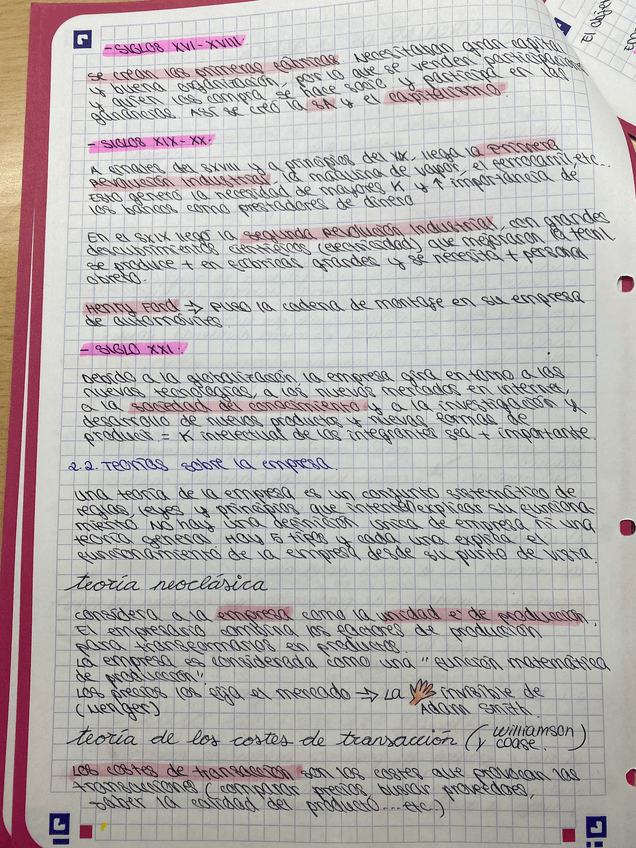 - SIGLOS XVI-XVIII
Se crean las primeras fábricas. Necesitaban gran capital
y buena organización por lo que se venden participaciones
y quien las compra se hace socio y participa en las
ganancias. Así se creó la SA y el capitalismo.
- SIGLOS XIX-XX.
A finales del SXVIII y a principios del XIX, llega la Primera
Revolución Industrial, la máquina de vapor, el ferrocarril, etc...
Esto generó la necesidad de mayores K y ↑ importancia de
los bancos como prestadores de dinero.
En el SXIX llegó la Segunda Revolución Industrial, con grandes
descubrimientos científicos (electricidad) que mejoraron la
se produce + en fábricas grandes y se necesita + personal
obrero.
Henry Ford ⇒ puso la cadena de montaje en su empresa
de automóviles.
- SIGLO XXI.
Debido a la globalización la empresa gira entorno a las
nuevas tecnologías, a los nuevos mercados en internet,
a la sociedad del conocimiento y a la investigación y
desarrollo de nuevos productos y nuevas formas de
producir = K intelectual de los integrantes sea + importante.
2.2. Teorías sobre la empresa.
Una teoría de la empresa es un conjunto sistemático de
reglas, leyes y principios que explicar su funciona
miento. No hay una definición única de empresa ni una
teoría general. Hay 5 tipos y cada una explica el
funcionamiento de la empresa desde su punto de vista.
teoría neoclásica
Considera a la empresa como la unidad eª de producción.
El empresario combina los factores de producción
para transformarlos en productos.
La empresa es considerada como una "función matemática
de producción".
Los precios los fija el mercado ⇒ La invisible de
(Menger) Adam Smith.
teoría de los costes de transacción (williamson
y coase.)
Los costes de transacción son los costes que provocan las
transacciones (comparar precios, buscar proveedores,
saber la calidad del producto... etc.)
El objet
Em